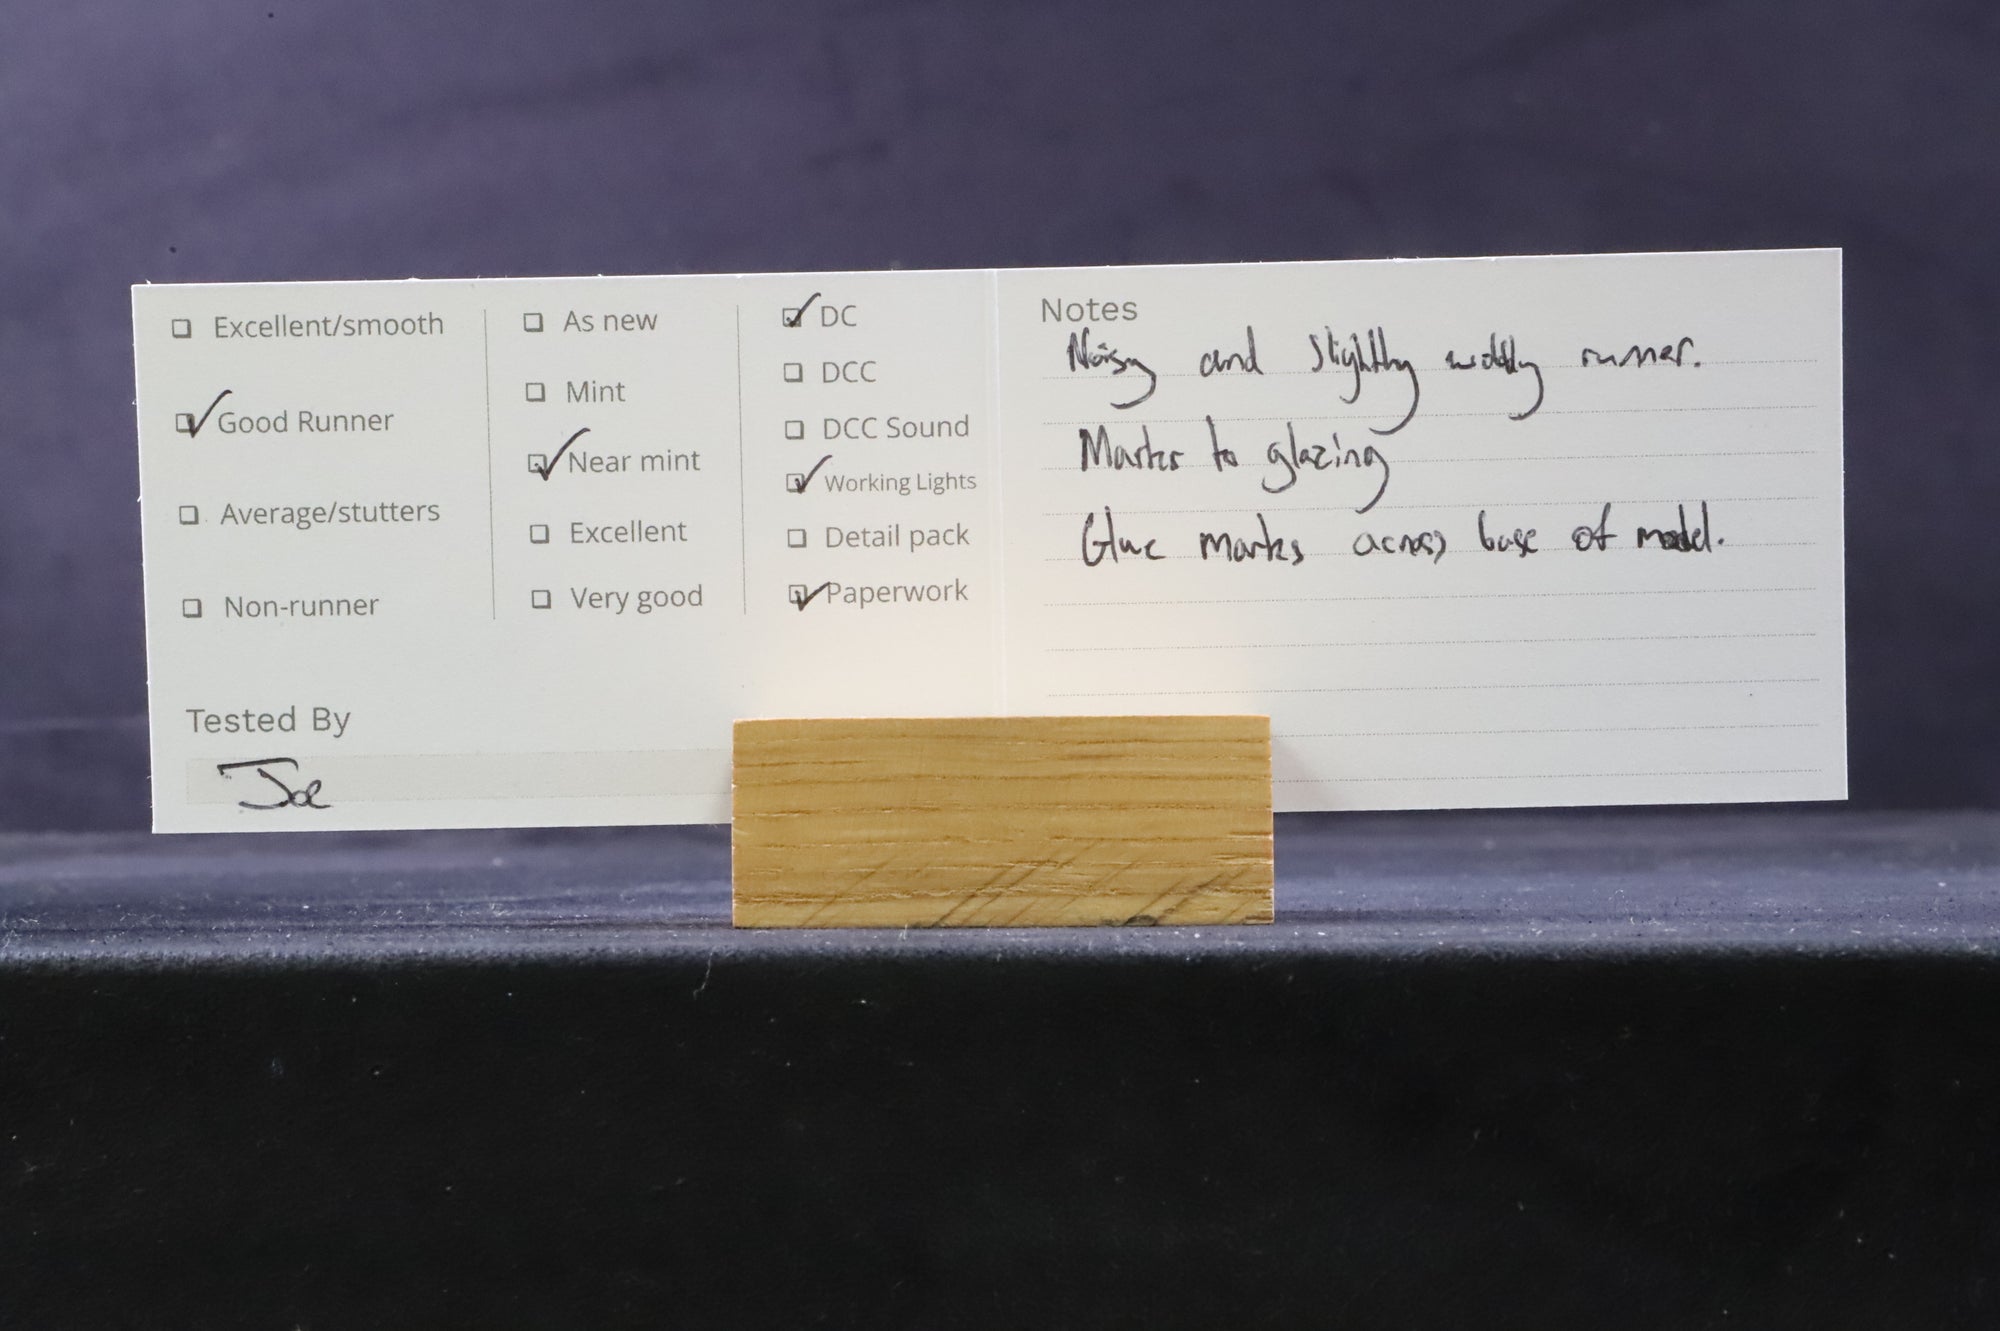 Excellent/smooth
Good Runner
Average/stutters
Non-runner
As new
Mint
Near mint
Excellent
Very good
DC
DCC
DCC Sound
Working Lights
Detail pack
Paperwork
Tested By
Joe
Notes
Noisy and slightly wobbly runner.
Marks to glazing
Glue marks across base of model.